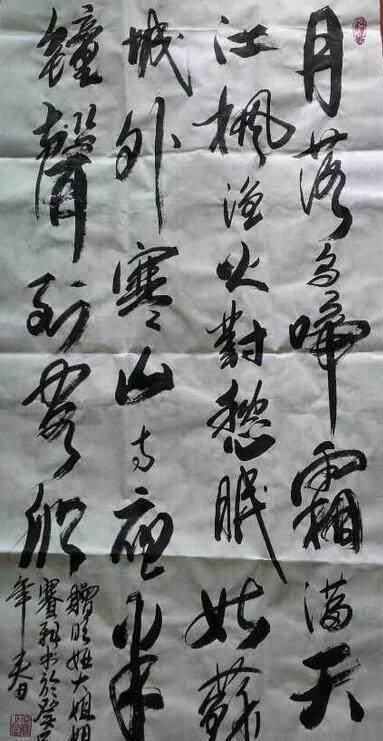 月落烏啼霜滿天
江楓漁火對愁眠姑蘇
城外寒山寺夜半
鐘聲到客船
大姐
於癸
年春日